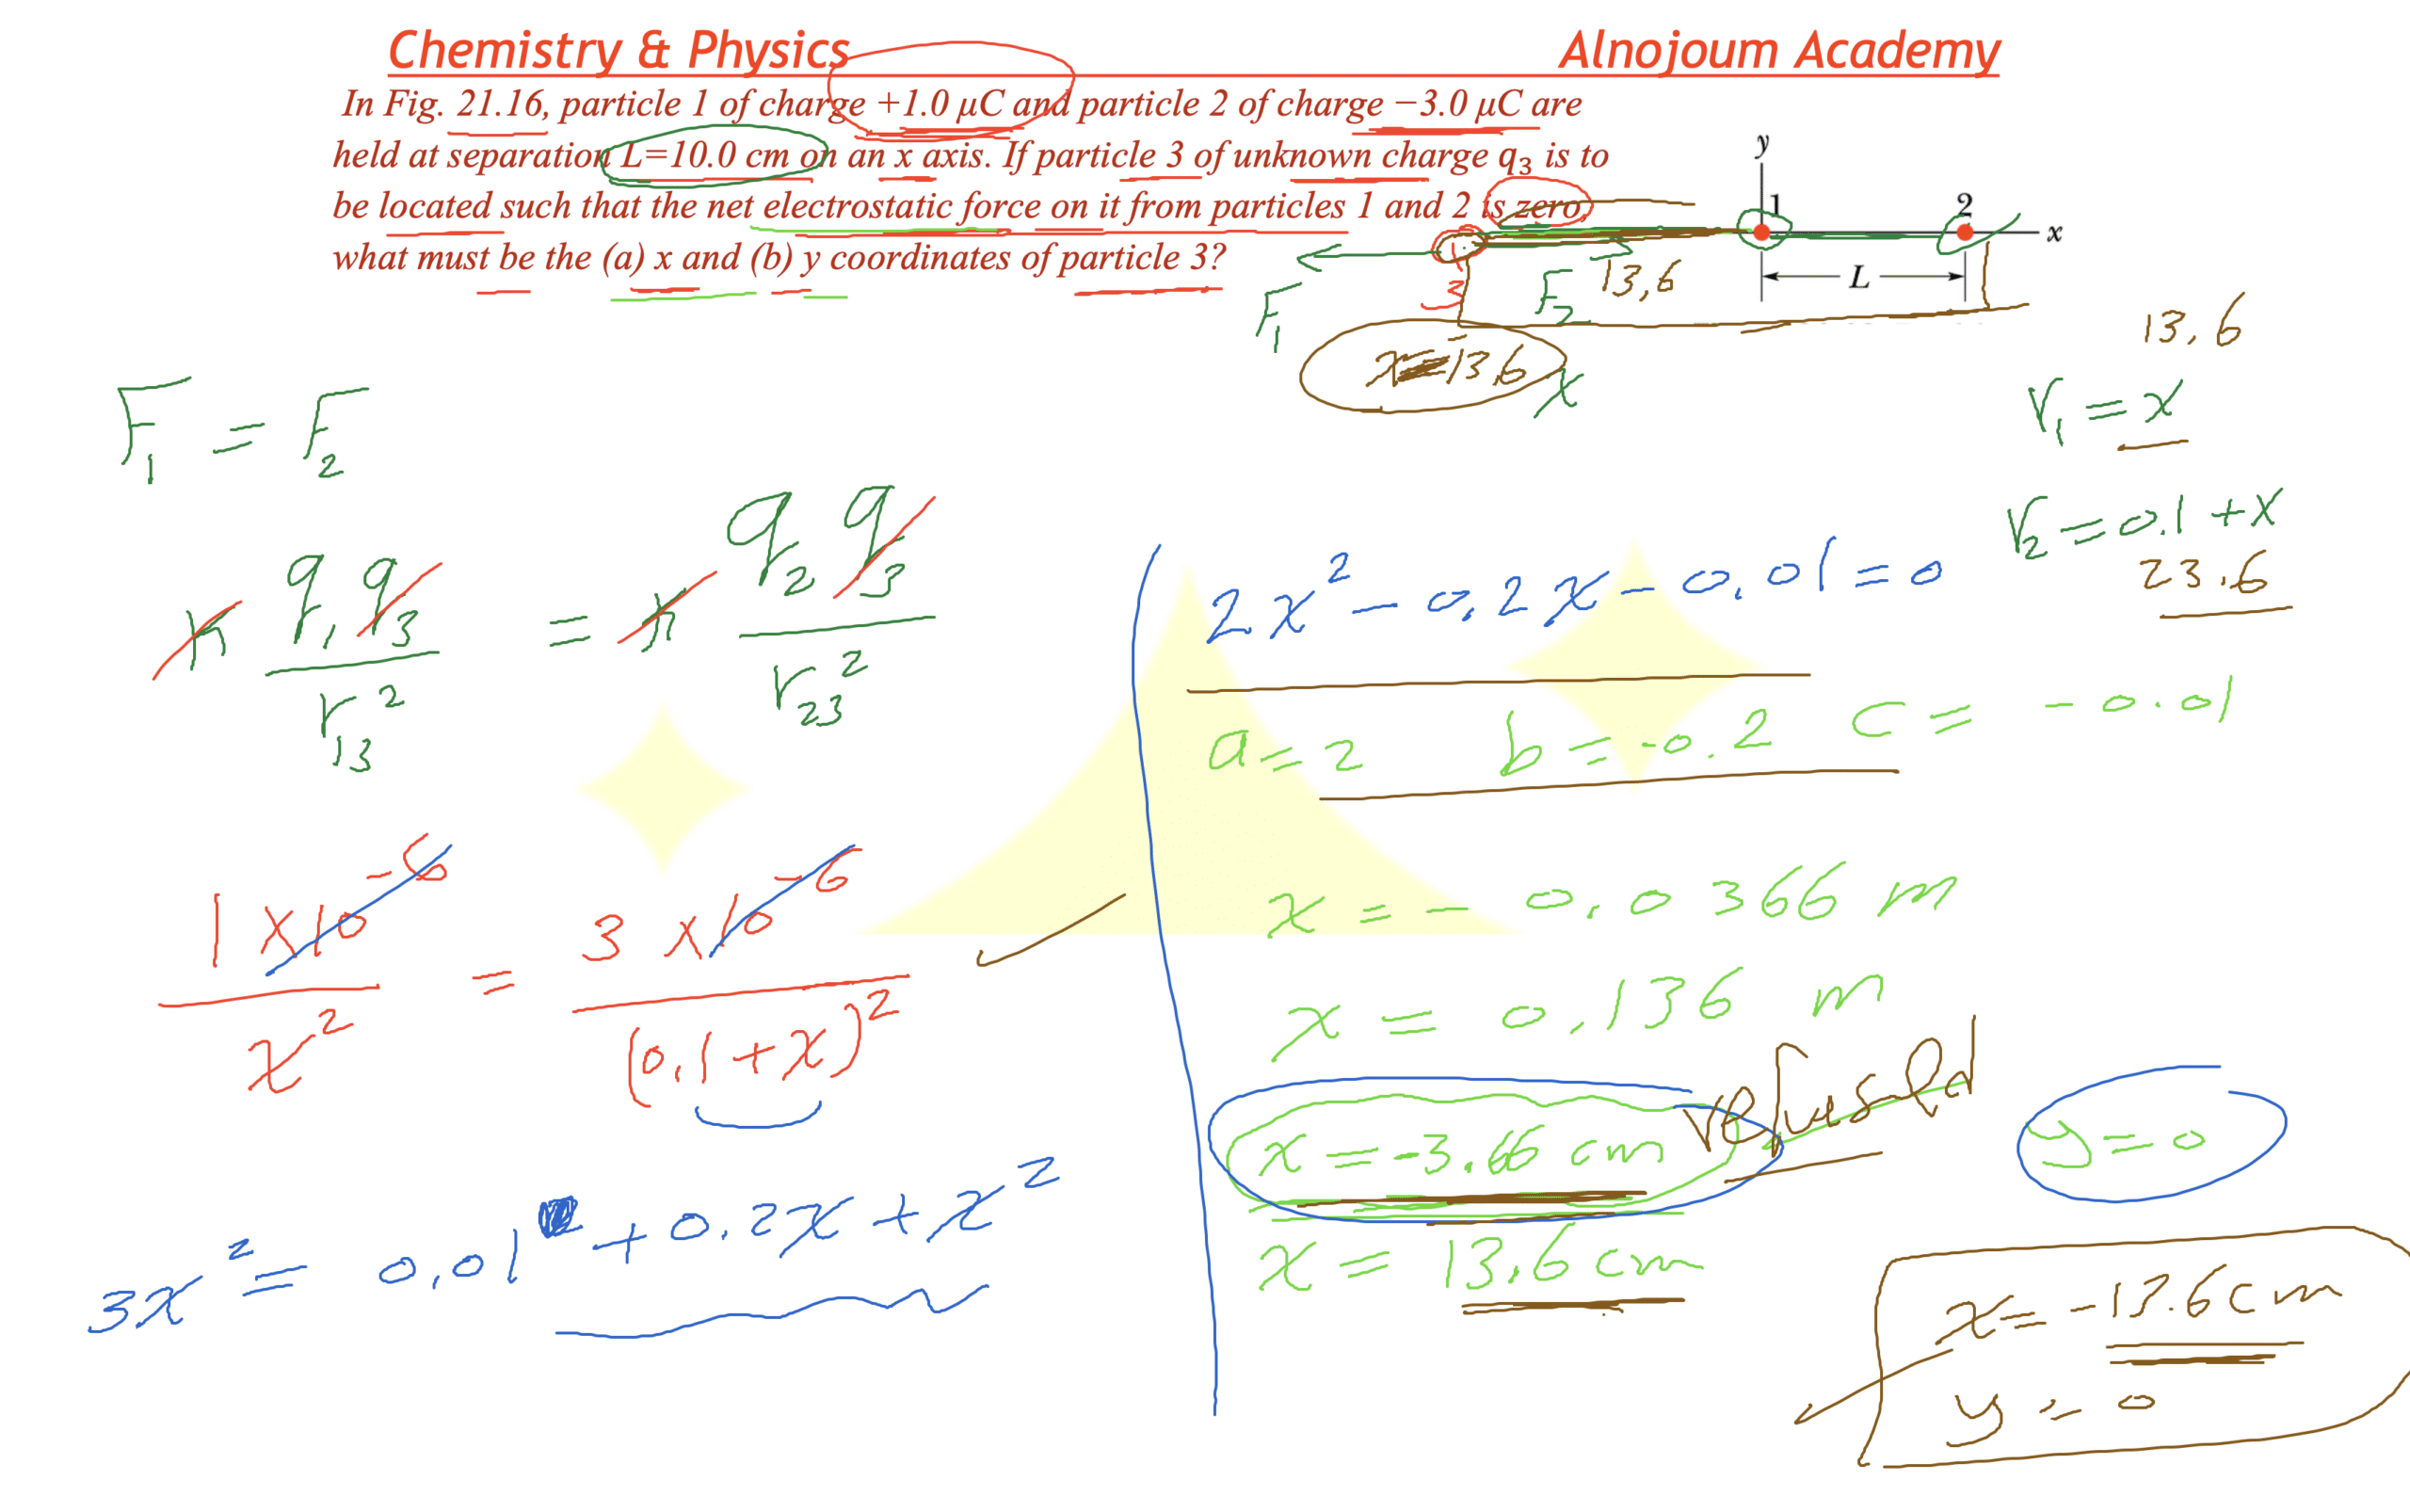 Chemistry & Physics Alnojoum Academy
In Fig. 21.16, particle 1 of charge +1.0 μC and particle 2 of charge −3.0 μC are
held at separation L=10.0 cm on an x axis. If particle 3 of unknown charge q₃ is to
be located such that the net electrostatic force on it from particles 1 and 2 is zero,
what must be the (a) x and (b) y coordinates of particle 3?
y
1 2
x
L
3
F₁
F₂
13,6
x=-13.6
x
13,6
r₁ = x
r₂ = 0.1 + x
23.6
F₁ = F₂
k q₁ q₃ / r₁₃² = k q₂ q₃ / r₂₃²
1 x 10⁻⁶ / x² = 3 x 10⁻⁶ / (0,1 + x)²
3x² = 0,01 + 0.2x + x²
2x² − 0,2x − 0,01 = 0
a = 2 b = -0.2 c = -0.01
x = - 0,0366 m
x = 0,136 m
x = -3.66 cm refused
y = 0
x = 13,6 cm
x = -13.6 cm
y = 0